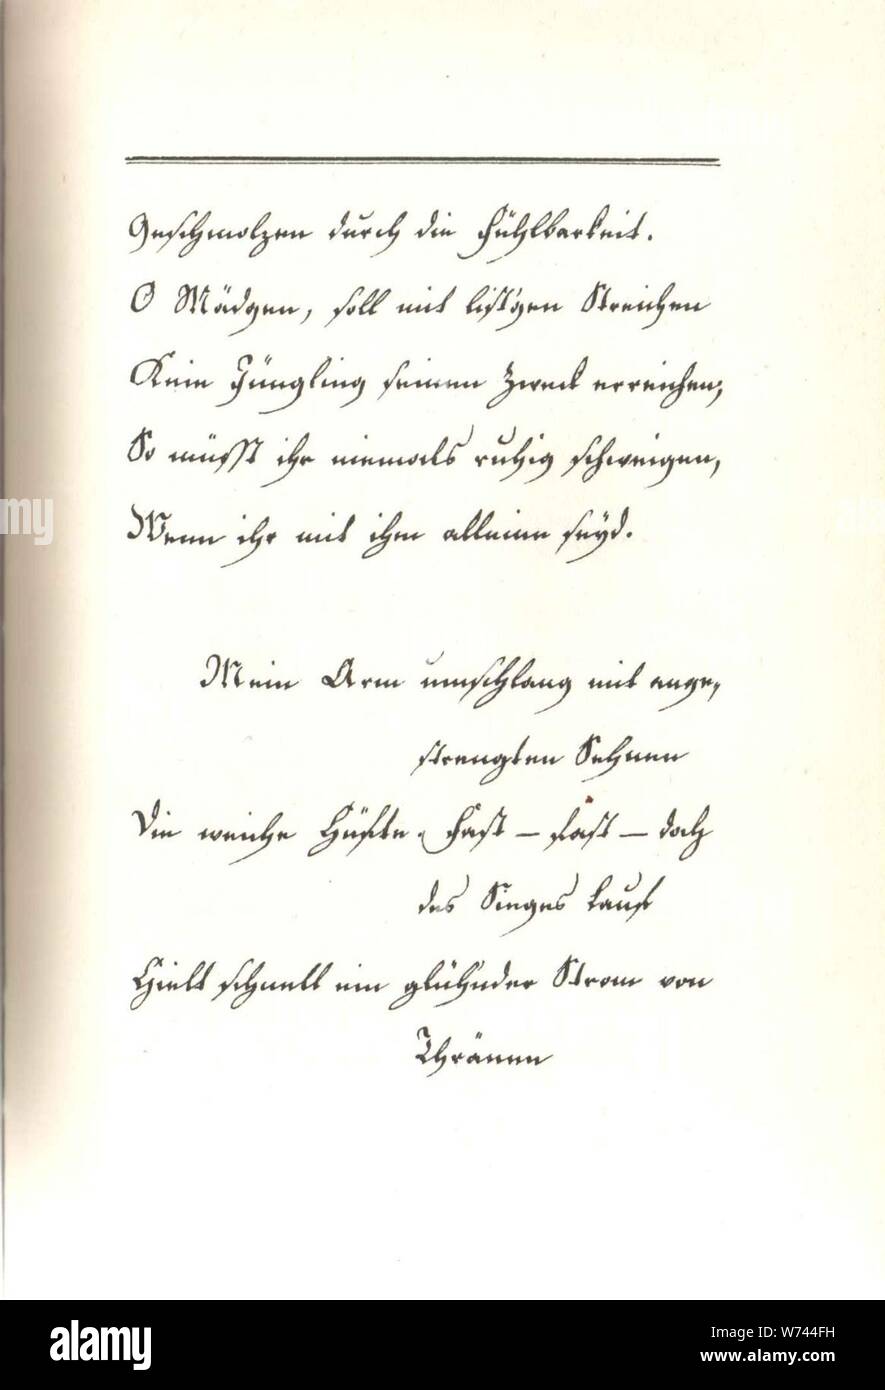 Geschmolzen durch die Fühlbarkeit.
O Mädgen, soll mit list'gen Streichen
Kein Jüngling seinen Zweck erreichen;
So müsst ihr niemals ruhig schweigen,
Wenn ihr mit ihm alleine seyd.
Mein Arm umschlang mit ange-
strengten Sehnen
Die weiche Hüfte. Fast – fast – doch
des Sieges Lauf
Hielt schnell ein glühnder Strom von
Thränen
my
alamy
Image ID: W744FH
www.alamy.com